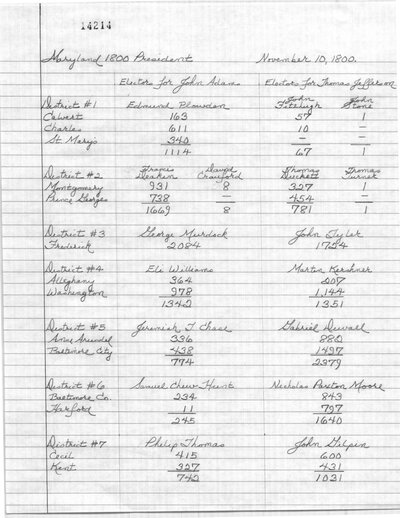 14214
Maryland 1800 President November 10, 1800.
Electors for John Adams Electors for Thomas Jefferson
District #1 Edmund Plowden John Fitzhugh John Stone
Calvert 163 57 1
Charles 611 10 —
St Mary's 340 — —
1114 67 1
District #2 Francis Deakin David Crauford Thomas Duckett Thomas Turner
Montgomery 931 8 327 1
Prince Georges 738 — 454 —
1669 8 781 1
District #3 George Murdock John Tyler
Frederick 2084 1724
District #4 Eli Williams Martin Kershner
Alleghany 364 207
Washington 978 1,144
1342 1351
District #5 Jeremiah T Chase Gabriel Duvall
Anne Arundel 336 882
Baltimore City 438 1497
774 2379
District #6 Samuel Chew Hunt Nicholas Paxton Moore
Baltimore Co. 234 843
Harford 11 797
245 1640
District #7 Philip Thomas John Gilpin
Cecil 415 600
Kent 327 431
742 1031